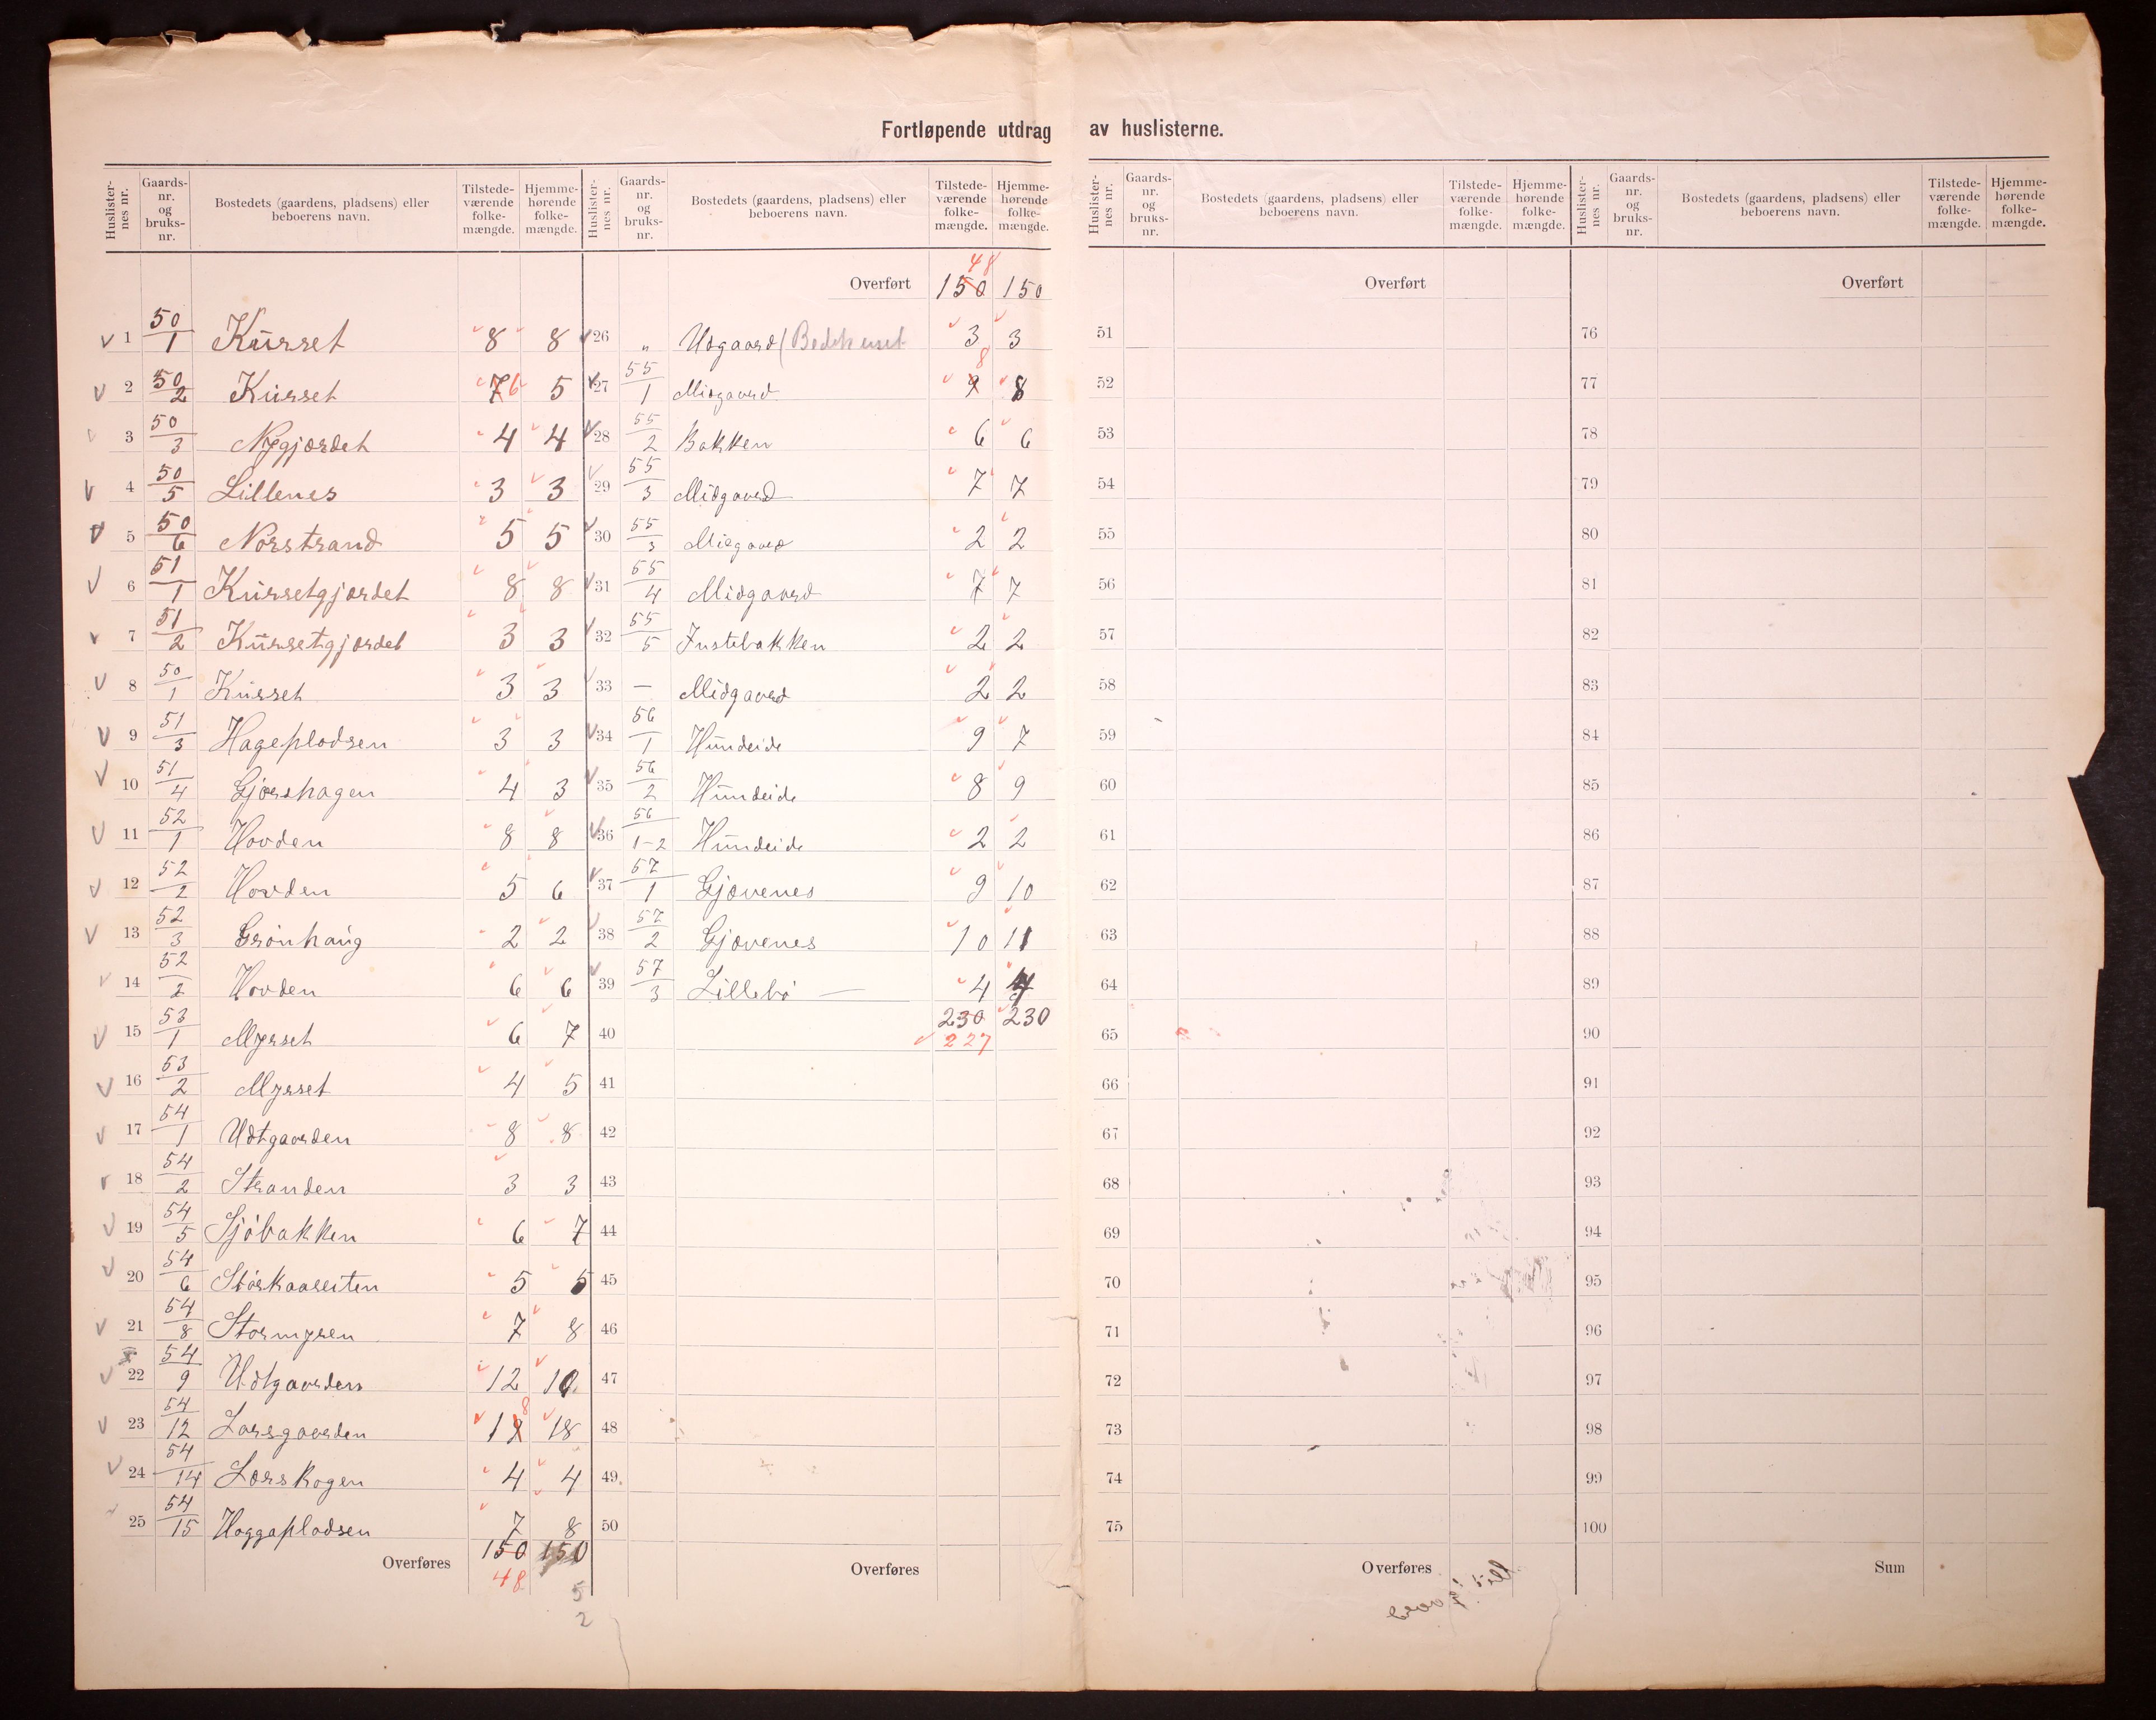 Fortløpende utdrag av huslisterne.
Huslisternes nr. Gaards-nr. og bruks-nr. Bostedets (gaardens, pladsens) eller beboerens navn. Tilstedeværende folkemængde. Hjemmehørende folkemængde.
1 50/1 Kursset 8 8
2 50/2 Kursset 7 6 5
3 50/3 Nygjordet 4 4
4 50/5 Lillenes 3 3
5 50/6 Norstrand 5 5
6 51/1 Kurssetgjordet 8 8
7 51/2 Kurssetgjordet 3 3
8 50/1 Kursset 3 3
9 51/3 Hageplodsen 3 3
10 51/4 Gjørshagen 4 3
11 52/1 Hovden 8 8
12 52/2 Hovden 5 6
13 52/3 Grønhaug 2 2
14 52/2 Hovden 6 6
15 53/1 Myrset 6 7
16 53/2 Myrset 4 5
17 54/1 Udtgaarden 8 8
18 54/2 Stranden 3 3
19 54/5 Sjøbakken 6 7
20 54/6 5 5
21 54/8 Stormyren 7 8
22 54/9 Udtgaarden 12 10
23 54/12 Larsgaarden 19 8 18
24 54/14 Lorskogen 4 4
25 54/15 Haggaplodsen 7 8
Overføres 150 150
48
5
2
Huslisternes nr. Gaards-nr. og bruks-nr. Bostedets (gaardens, pladsens) eller beboerens navn. Tilstedeværende folkemængde. Hjemmehørende folkemængde.
48
Overført 150 150
26 " Udgaard (Bedehuset 3 3
27 55/1 Midgaard 9 8 8
28 55/2 Bakken 6 6
29 55/3 Midgaard 7 7
30 55/3 Midgaard 2 2
31 55/4 Midgaard 7 7
32 55/5 Justebakken 2 2
33 — Midgaard 2 2
34 56/1 Hundeide 9 7
35 56/2 Hundeide 8 9
36 56/1-2 Hundeide 2 2
37 57/1 Gjøvenes 9 10
38 57/2 Gjøvenes 10 11
39 57/3 Lillebø — 4 4
230 230
40 227
41
42
43
44
45
46
47
48
49
50
Overføres
Huslisternes nr. Gaards-nr. og bruks-nr. Bostedets (gaardens, pladsens) eller beboerens navn. Tilstedeværende folkemængde. Hjemmehørende folkemængde.
Overført
51
52
53
54
55
56
57
58
59
60
61
62
63
64
65
66
67
68
69
70
71
72
73
74
75
Overføres
Huslisternes nr. Gaards-nr. og bruks-nr. Bostedets (gaardens, pladsens) eller beboerens navn. Tilstedeværende folkemængde. Hjemmehørende folkemængde.
Overført
76
77
78
79
80
81
82
83
84
85
86
87
88
89
90
91
92
93
94
95
96
97
98
99
100
Sum